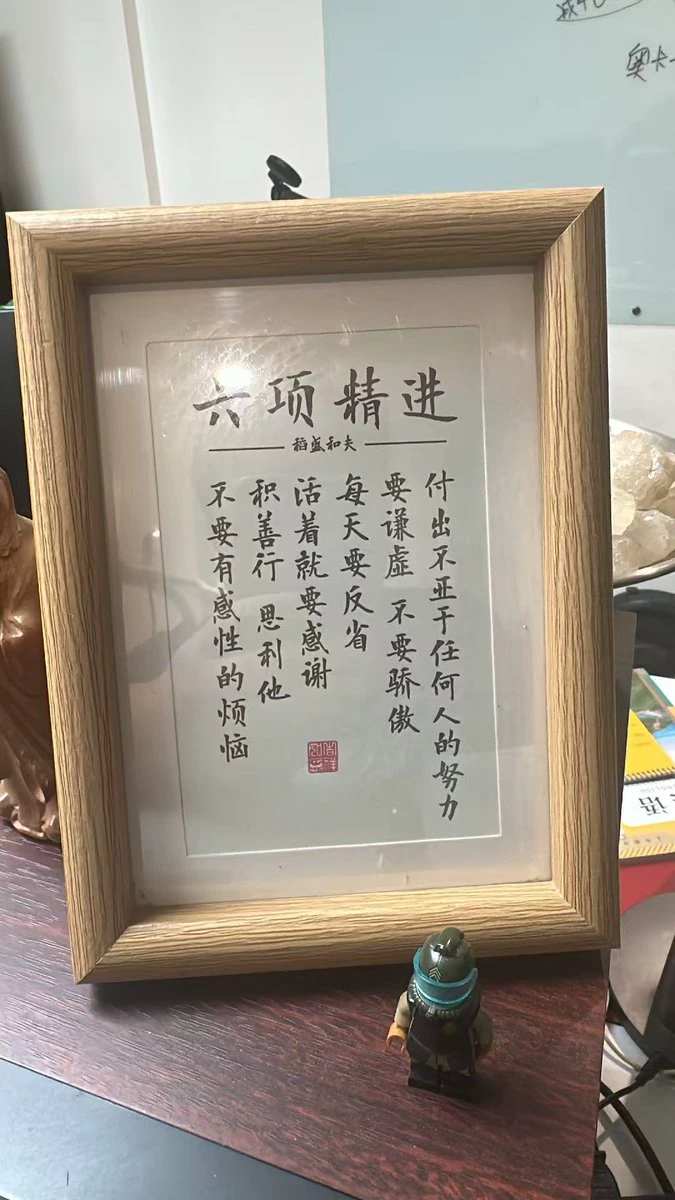 六项精进
稻盛和夫
付出不亚于任何人的努力
要谦虚 不要骄傲
每天要反省
活着就要感谢
积善行 思利他
不要有感性的烦恼
吉祥如意
奥卡
语